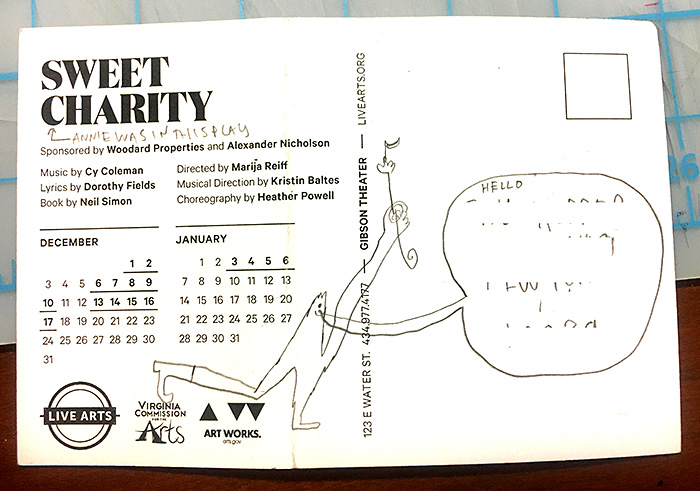 SWEET
CHARITY
ANNIE WAS IN THIS PLAY
Sponsored by Woodard Properties and Alexander Nicholson
Music by Cy Coleman
Lyrics by Dorothy Fields
Book by Neil Simon
Directed by Marija Reiff
Musical Direction by Kristin Baltes
Choreography by Heather Powell
DECEMBER
1 2
3 4 5 6 7 8 9
10 11 12 13 14 15 16
17 18 19 20 21 22 23
24 25 26 27 28 29 30
31
JANUARY
1 2 3 4 5 6
7 8 9 10 11 12 13
14 15 16 17 18 19 20
21 22 23 24 25 26 27
28 29 30 31
LIVE ARTS
VIRGINIA
COMMISSION
FOR THE
Arts
ART WORKS.
arts.gov
123 E WATER ST. 434.977.4177 — GIBSON THEATER — LIVEARTS.ORG
HELLO
26